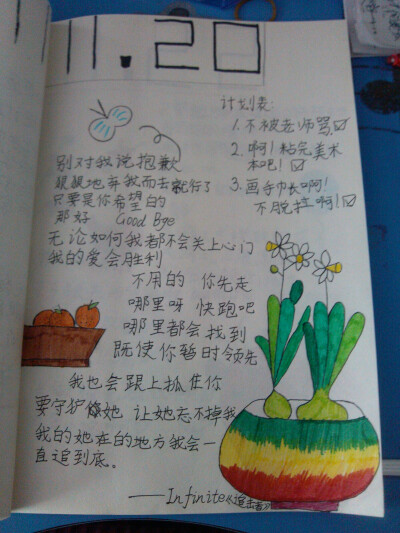 11.20
计划表:
1. 不被老师骂☑
2. 啊!粘完美术
本吧!☑
3. 画手巾长啊!
不脱拉啊!☑
别对我说抱歉
狠狠地弃我而去就行了
只要是你希望的
那好 Good Bye
无论如何我都不会关上心门
我的爱会胜利
不用的 你先走
哪里呀 快跑吧
哪里都会找到
既使你暂时领先
我也会跟上抓住你
要守护她 让她忘不掉我
我的她在的地方我会一
直追到底。
——Infinite《追击者》